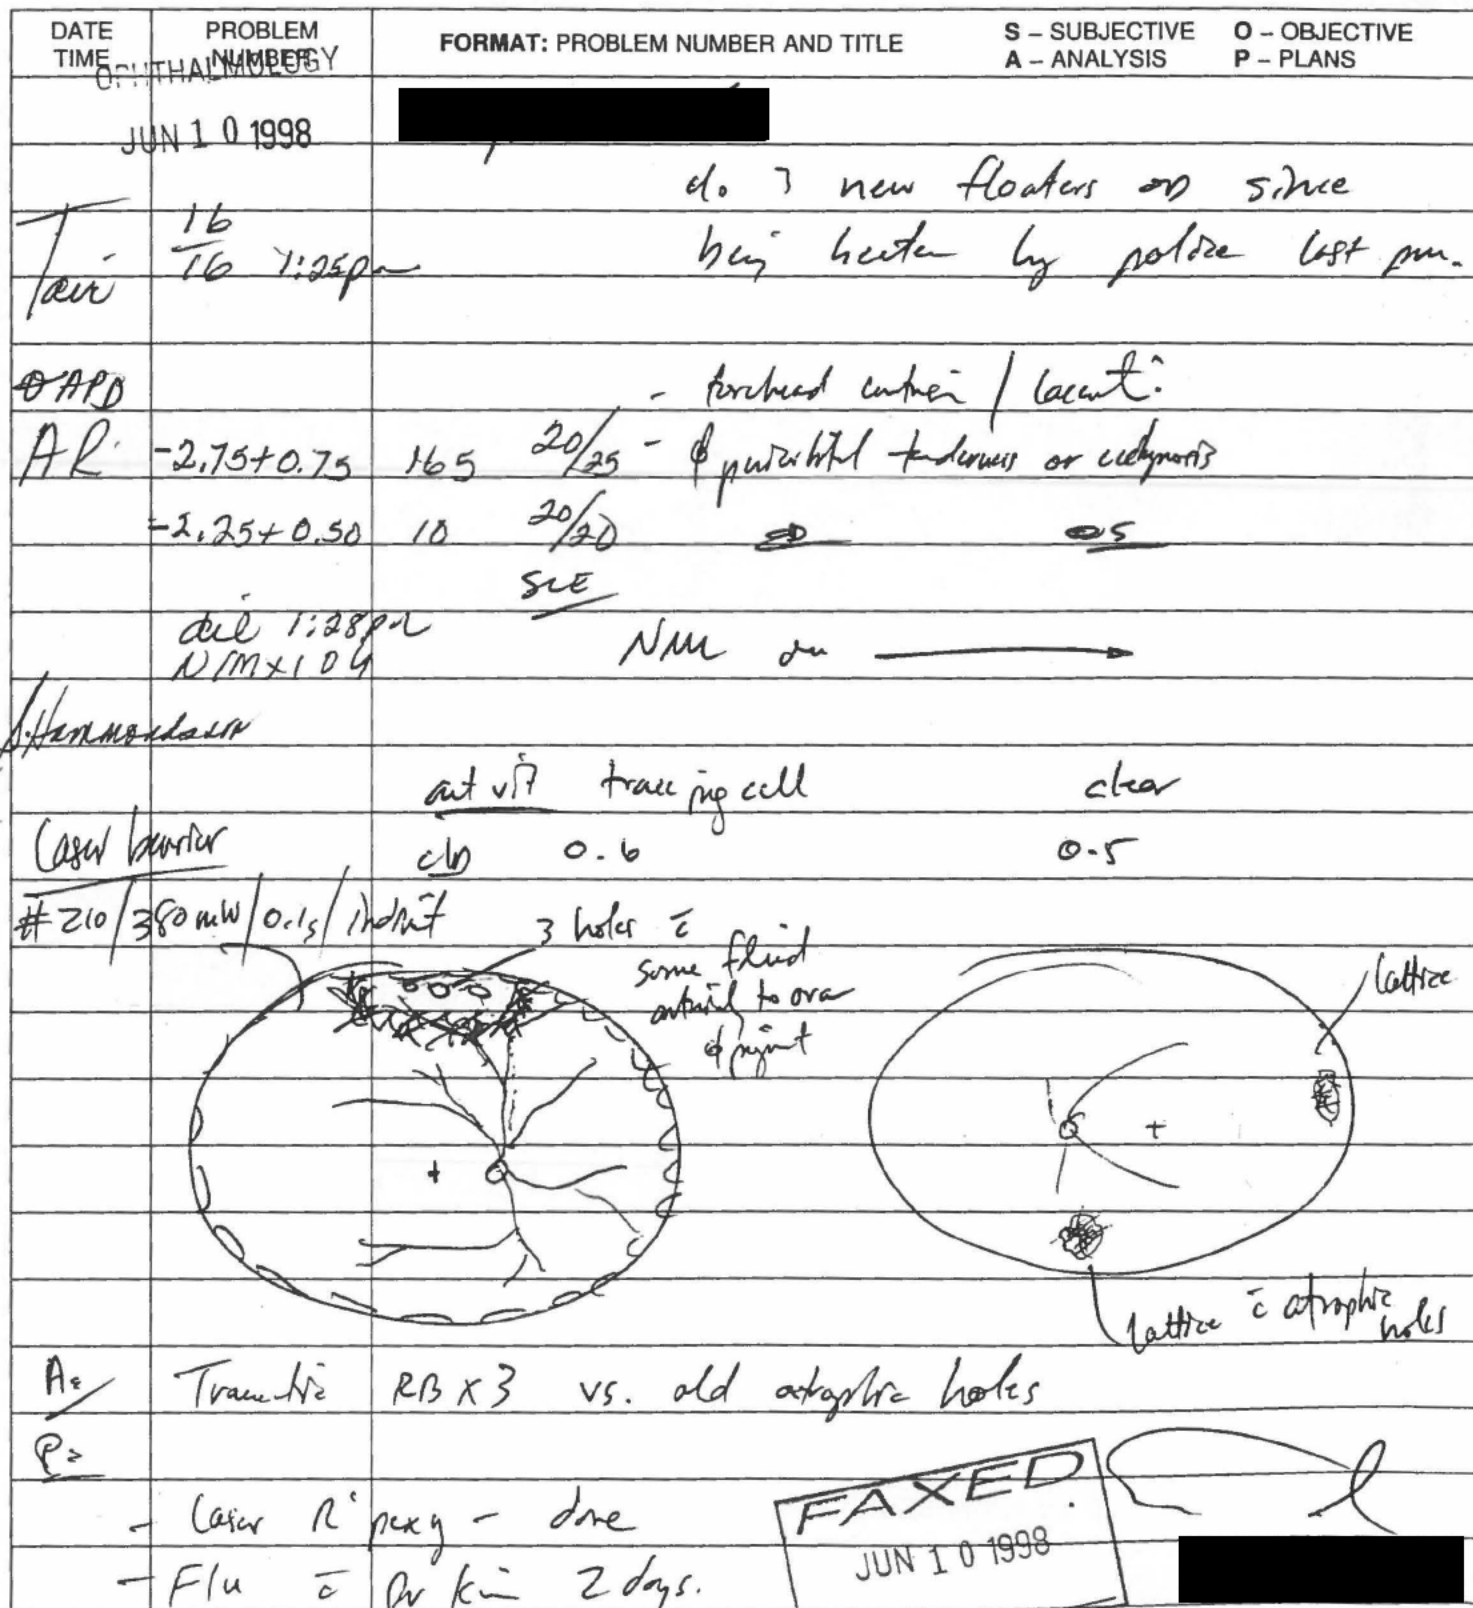 DATE TIME PROBLEM NUMBER FORMAT: PROBLEM NUMBER AND TITLE S – SUBJECTIVE O – OBJECTIVE
A – ANALYSIS P – PLANS
OPHTHALMOLOGY
JUN 10 1998
new floaters OD since
being beaten by police last pm.
16
Tair 16 1:25pm
APD - forehead contusion /
AR -2.75+0.75 165 20/25 - periorbital tenderness or ecchymosis
-2.25+0.50 10 20/20 OD OS
SLE
dil 1:28pm
N/M x 1 OU
ant vit trace pig cell clear
Laser barrier c/D 0.6 0.5
#210/380mW/0.1s/indirect 3 holes c̄
some fluid
anterior to ora
lattice
lattice c̄ atrophic
holes
A: Traumatic RB x 3 vs. old atrophic holes
P:
- Laser R'pexy - done
- F/u c̄ Dr Kim 2 days.
FAXED
JUN 10 1998